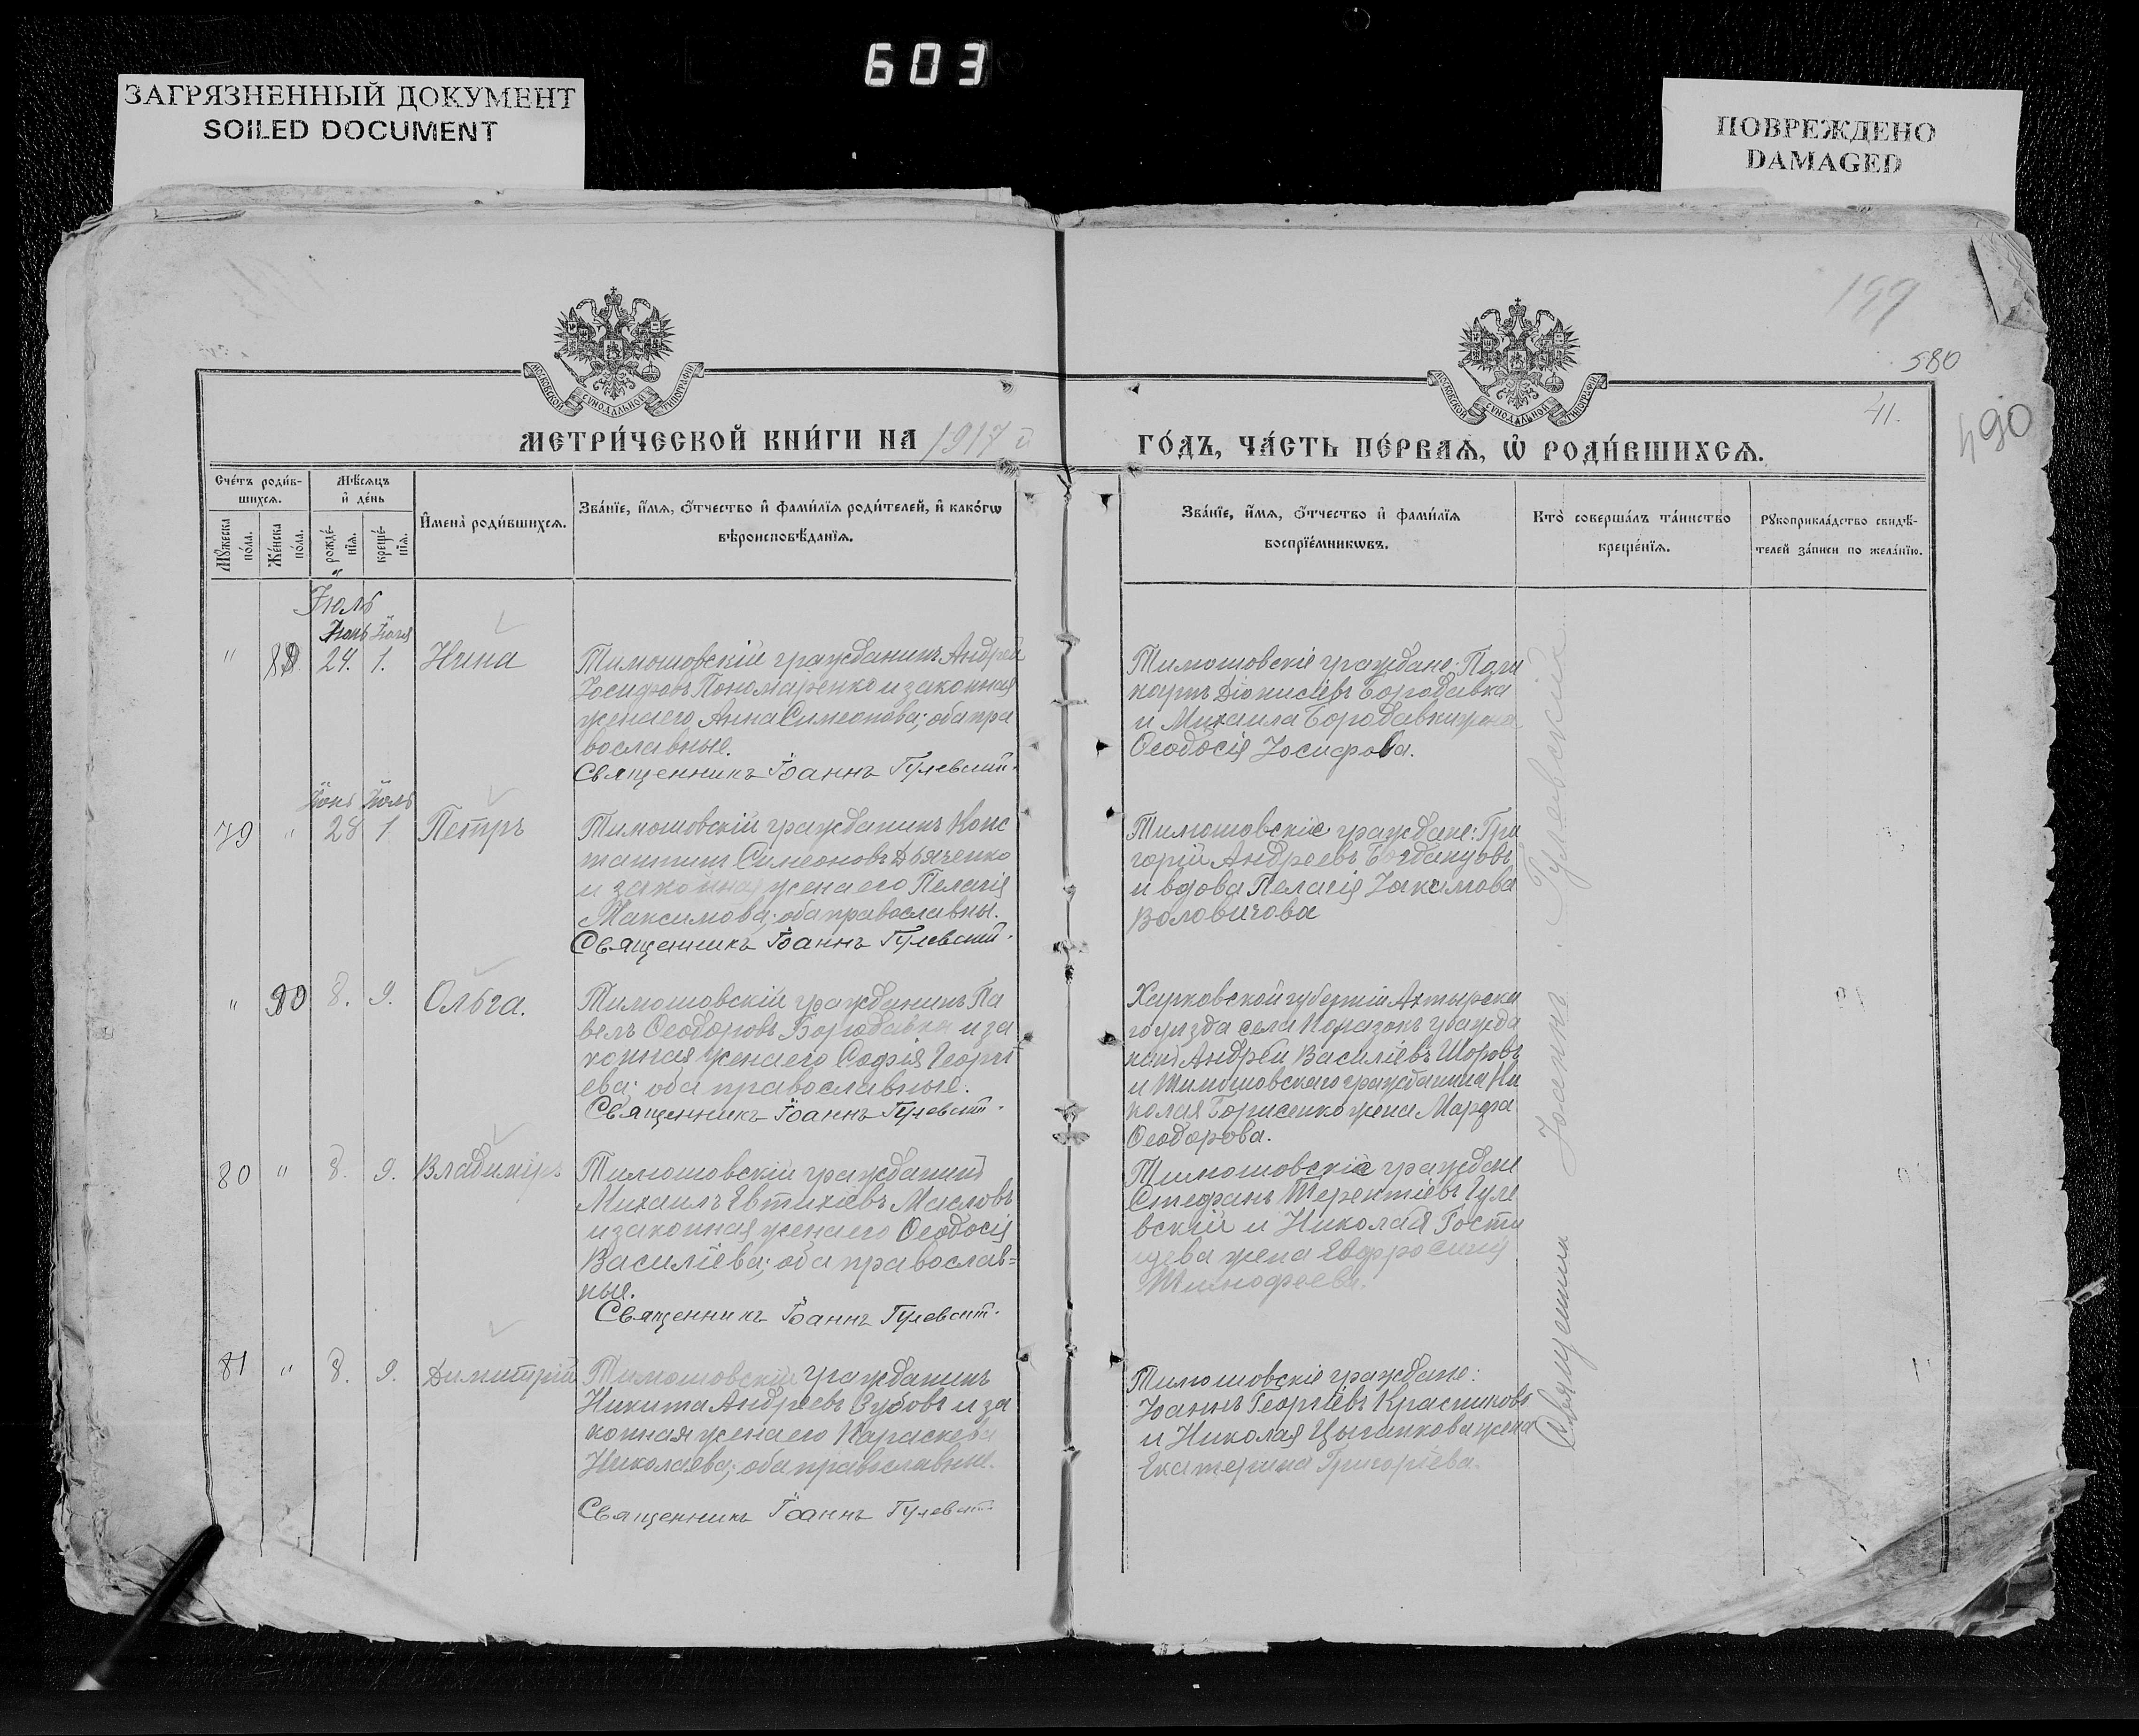 603
ЗАГРЯЗНЕННЫЙ ДОКУМЕНТ
SOILED DOCUMENT
ПОВРЕЖДЕНО
DAMAGED
199
580
490
41.
МОСКОВСКОЙ СУНОДАЛЬНОЙ ТИПОГРАФІИ
МОСКОВСКОЙ СУНОДАЛЬНОЙ ТИПОГРАФІИ
МЕТРИ́ЧЕСКОЙ КНИ́ГИ НА 1917 й
ГО́ДЪ, ЧА́СТЬ ПЕ́РВАѦ, Ѡ҆ РОДИ́ВШИХСѦ.
Сче́тъ роди́в-
шихсѧ.
Мѣ́сѧцъ
и҆ де́нь
Мꙋ́жеска
по́ла.
Же́нска
по́ла.
рожде́-
нїѧ.
креще́-
нїѧ.
И҆мена̀ роди́вшихсѧ.
Зва́нїе, и҆́мѧ, ѻ҆́тчество и҆ фами́лїѧ роди́телей, и҆ како́гѡ
вѣроисповѣ́данїѧ.
Зва́нїе, и҆́мѧ, ѻ҆́тчество и҆ фами́лїѧ
воспрїе́мникѡвъ.
Кто̀ соверша́лъ та́инство
креще́нїѧ.
Рꙋкоприкла́дство свидѣ́-
телей за́писи по жела́нїю.
Іюль
Іюнь Іюля
" 89 24. 1. Нина
Тимошовскій гражданинъ Андрей
Іосифовъ Пономаренко и законная
жена его Анна Симеонова; оба пра
вославные.
Священникъ Іоаннъ Гулевскій.
Тимошовскіе граждане: Поли
карпъ Діонисіевъ Бородавка
и Михаила Бородавки жена
Ѳеодосія Іосифова.
Іюнь Іюль
79 " 28 1 Петръ
Тимошовскій гражданинъ Конс
тантинъ Симеоновъ Дьяченко
и законная жена его Пелагія
Максимова; оба православны.
Священникъ Іоаннъ Гулевскій.
Тимошовскіе граждане: Гри
горій Андреевъ Богдануовъ
и вдова Пелагія Іакимова
Воловичова
" 90 8. 9. Ольга.
Тимошовскій гражданинъ Па
велъ Ѳеодоровъ Бородавка и за
конная жена его Софія Георгі
ева; оба православные.
Священникъ Іоаннъ Гулевскій.
Харковской губерніи Ахтырска
го уѣзда села гражда
нинъ Андрей Василіевъ Шоровъ
и Тимошовскаго гражданина Ни
колая Борисенко жена Марфа
Ѳеодорова.
80 " 8. 9. Владиміръ
Тимошовскій гражданинъ
Михаилъ Евтихіевъ Масловъ
и законная жена его Ѳеодосія
Василіева; оба православ=
ные.
Священникъ Іоаннъ Гулевскій.
Тимошовскіе граждане
Стефанъ Терентіевъ Гуле
вскій и Николая Гости
щева жена Евфросинія
Тимофеева.
81 " 8. 9. Димитрій
Тимошовскій гражданинъ
Никита Андреевъ Зубовъ и за
конная жена его Параскева
Николаева; оба православные.
Священникъ Іоаннъ Гулевскій.
Тимошовскіе граждане:
Іоаннъ Георгіевъ Красниковъ
и Николая Цыганкова жена
Екатерина Григоріева.
Священникъ Іоаннъ Гулевскій